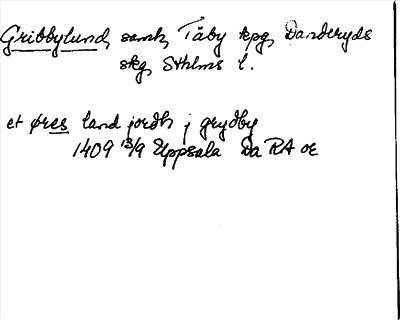 Gribbylund, samh, Täby kpg, Danderyds
skg, Sthlms l.
et øres land jordh j grydby
1409 13/9 Uppsala Da RA oe